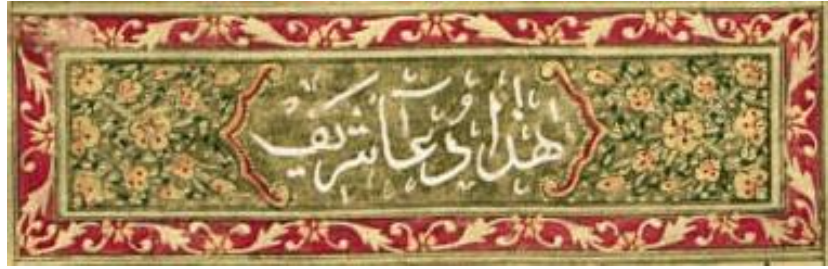 هذا دعآ شريف